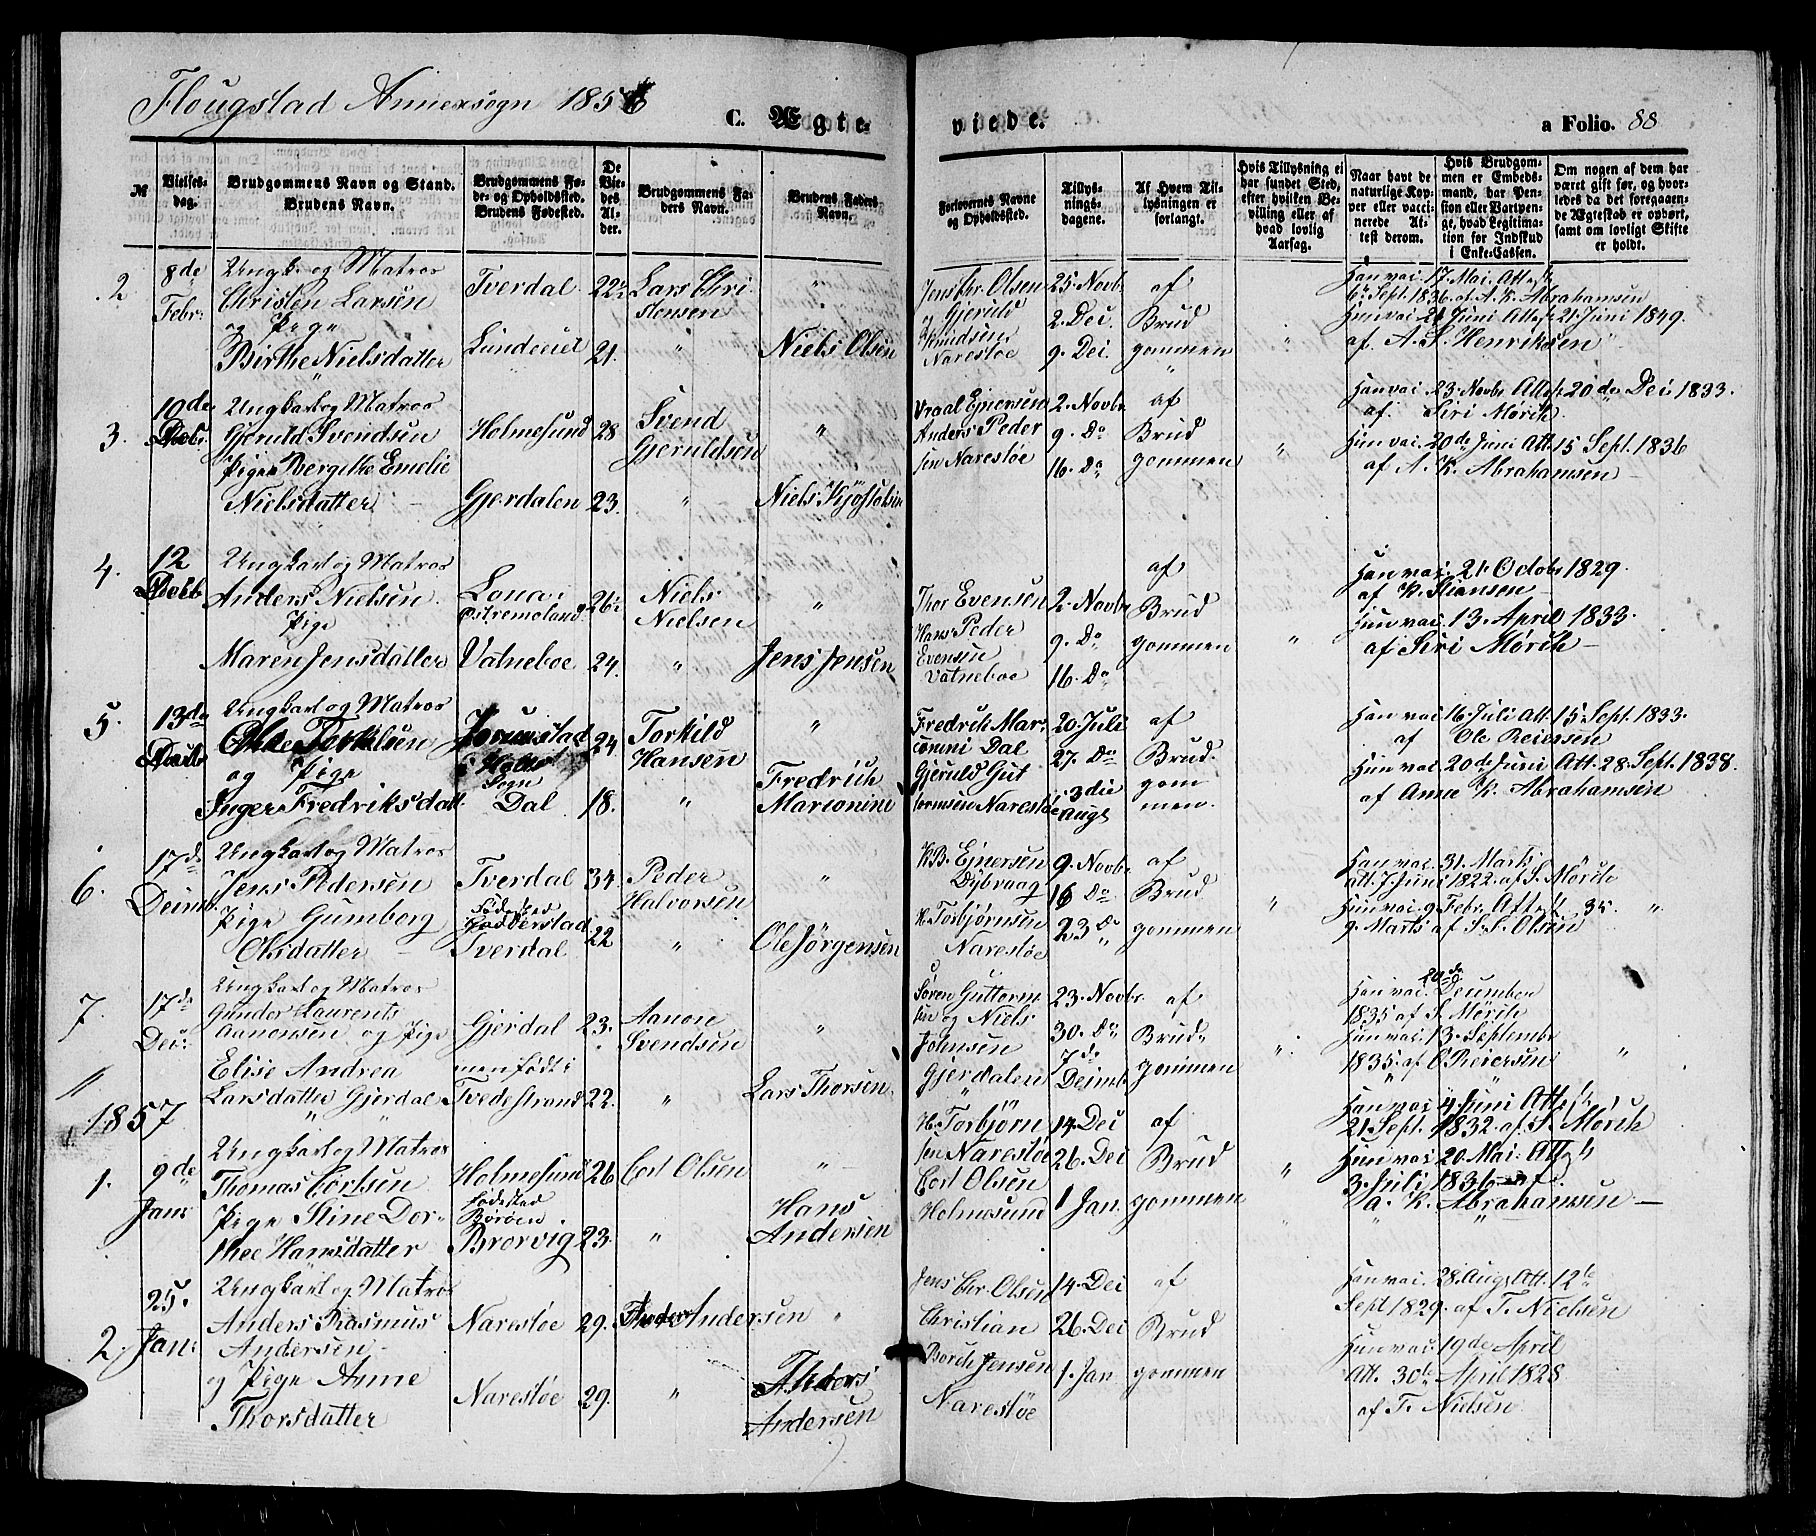 Flougstad Annexsogn 1856
C. Ægte-
viede.
a Folio. 88
№
Vielses-
dag.
Brudgommens Navn og Stand.
Brudens Navn.
Brudgommens Fø-
de- og Opholdssted.
Brudens Fødested.
De
Vie-
des
Al-
der.
Brudgommens Fa-
ders Navn.
Brudens Faders
Navn.
Forlovernes Navne
og Opholdssted.
Tillys-
nings-
dagene.
Af Hvem Til-
lysningen er
forlangt.
Hvis Tillysning ei
har fundet Sted,
efter hvilken Be-
villing eller af
hvad lovlig
Aarsag.
Naar havt de
naturlige Kop-
per eller vacci-
nerede At-
test derom.
Hvis Brudgom-
men er Embeds-
mand, har Pen-
sion eller Vartpen-
ge, hvad Legitima-
tion for Indskud
i Enke-Cassen.
Om nogen af dem har
været gift før, og hvor-
ledes da det foregaaen-
de Ægteskab er ophørt,
samt om lovligt Skifte
er holdt.
2
8de
Febr:
Ungk. og Matros
Christen Larsen
og Pige
Birthe Nielsdatter
Tverdal
Lundeeiet
22½
21.
Lars Chri
stensen
"
"
Niels Olsen
Jens Chr. Olsen
og Gjeruld
Knudsen
Narestøe
25. Novbr
2. Dec.
9. Dec.
af
Brud
gommen
"
Han vac. 17. Mai. Att.
6te Sept. 1836. af A. K. Abrahamsen
Hun vac. 21 Juni Att af 21. Juni 1849.
af A. S. Henriksen
3.
10de
Decbr.
Ungkarl og Matros
Gjeruld Svendsen
Pige Bergitte Emelie
Nielsdatter
Holmesund
Gjerdalen
28
23.
Svend
Gjeruldsen
"
"
Niels Kjøstolsen
Vraal Ejnersen
Anders Peder
sen Narestøe
2. Novbr
9. Do
16. Do
af
Brud
gommen
"
Han vac. 23. Novbr Att af 20de Dec 1833.
af. Siri Mørch
Hun vac. 20de Juni Att. 15 Sept. 1836
af A. K. Abrahamsen
4.
12
Decbr
Ungkarl og Matros
Anders Nielsen
Pige
Maren Jensdatter
Lona i
Østremoland
Vatneboe
26½
24.
Niels
Nielsen
"
"
Jens Jensen
Thor Evensen
Hans Peder
Evensen
Vatneboe
2. Novbr
9. Do
16. Do
af
Brud
gommen
"
Han vac. 21. Octobr 1829.
af K. Stiansen
Hun vac. 13. April 1833.
af Siri Mørch
5.
13de
Decbr
Ungkarl og Matros
Ole Torkilsen
og Pige
Inger Fredriksdatt.
Jorunstad
i Holts
Sogn
Dal
24.
18.
Torkild
Hansen
"
"
Fredrich
Marconini
Fredrich Mar-
conini Dal
Gjeruld Gut
tormsen Narestøe
20. Juli
27. Do
3die
Augs
af
Brud
gom
men.
Han vac 16. Juli Att. 15. Sept. 1833.
af Ole Reiersen
Hun vac 20de Juni Att. 28. Sept. 1838.
af Anne K. Abrahamsen
6.
17de
Decmb.
Ungkarl og Matros
Jens Pedersen
Pige Gumborg
Olsdatter
Tverdal
Fødested
Gødderstad
Tverdal
34.
22
Peder
Halvorsen
"
"
Ole Jørgensen
K. B. Ejnersen
Dybvaag
H. Torbjørnsen
Narestøe
9. Novbr.
16 Do
23 Do
af
Brud
gommen
"
Han vac. 31. Marts
att. 7 Juni 1822. af S. Mørch
Hun vac. 9 Febr. Att. 35.
9. Marts af S. S. Olsen
7.
17de
Dec:
Ungkarl og Matros
Gunder Laurents
Aanonsen og Pige
Elise Andrea
Larsdatter Gjerdal
Gjerdal
men født i
Tvedestrand
23.
22.
Aanon
Svendsen
"
"
Lars Thorsen
Søren Guttorm
sen og Niels
Johnsen
Gjerdalen
23. Novbr.
30. Do
7de
Decmb.
af
Brud
gommen
"
Han vac. 20de December
1835 af S. Mørch
Hun vac. 13. Septembr
1835. af O. Reiersen
1857
1.
9de
Janr
Ungkarl og Matros
Thomas Cortsen
Pige Stine Dor-
thee Hansdatter
Holmesund
Fødested
Børøen
Brorvig
26
23.
Cort Olsen
"
"
Hans
Andersen
H. Torbjørn
sen Narestøe
Cort Olsen
Holmesund
14. Dec
26. Dec
1 Jan.
af
Brud
gommen
"
Han vac 4. Juni Att
21. Sept. 1832. af S. Mørch
Hun vac 20. Mai. Att
3. Juli 1836 af
A. K. Abrahamsen
2.
25.
Jan:
Ungkarl og Matros
Anders Rasmus
Andersen
og Pige Anne
Thorsdatter
Narestøe
Narestøe
29.
29.
Andersen
"
"
Andersen
Jens Chr. Olsen
Christian
Borch Jensen
Narestøe
14. Dec
26. Dec
1. Jan
af
Brud
gommen
Han vac. 28. Augs Att. 12te
Sept 1829. af T. Nielsen
Hun vac. 19de April
Att. 30te April 1828
af T. Nielsen